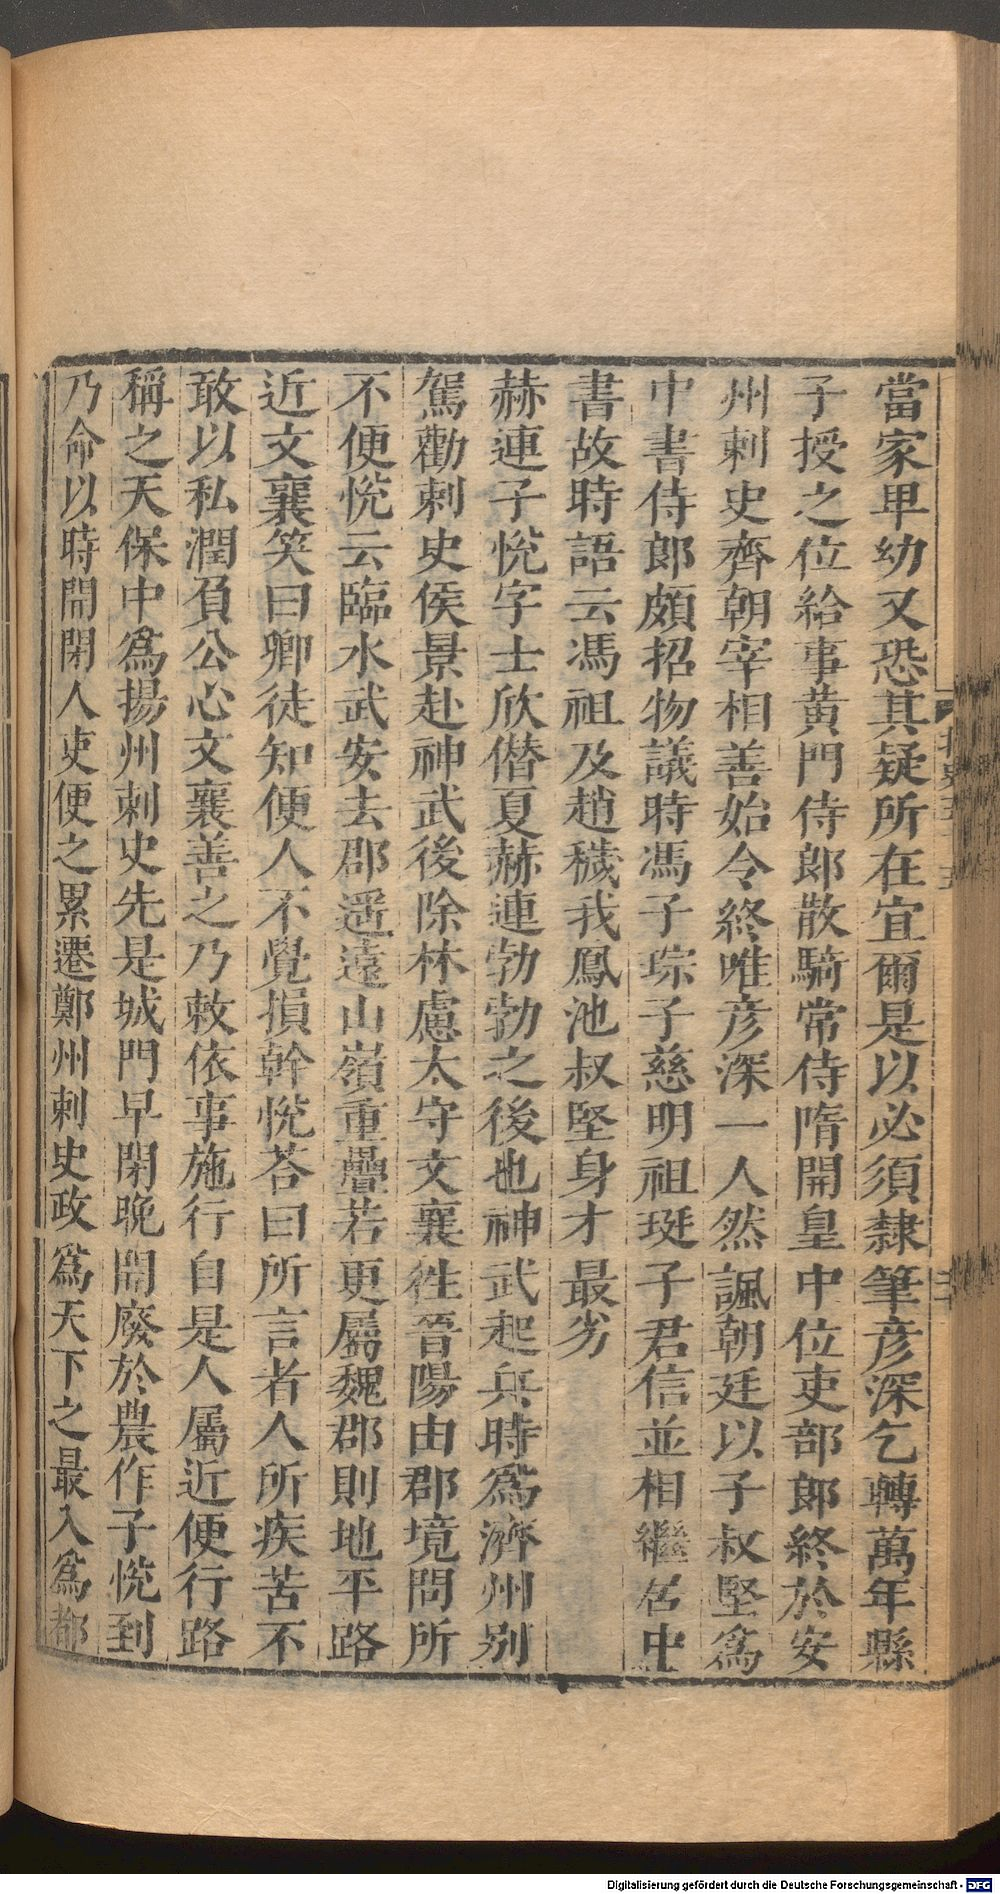 當家卑幼又恐其疑所在宜爾是以必須隸筆彥深乞轉萬年縣
子授之位給事黃門侍郎散騎常侍隋開皇中位吏部郎終於安
州刺史齊朝宰相善始令終唯彥深一人然諷朝廷以子叔堅爲
中書侍郎頗招物議時馮子琮子慈明祖珽子君信並相繼居中
書故時語云馮祖及趙穢我鳳池叔堅身才最劣
赫連子悅字士欣僭夏赫連勃勃之後也神武起兵時爲濟州別
駕勸刺史侯景赴神武後除林慮太守文襄徃晉陽由郡境問所
不便悅云臨水武安去郡遥遠山嶺重疊若更屬魏郡則地平路
近文襄笑曰卿徒知便人不覺損幹悅荅曰所言者人所疾苦不
敢以私潤負公心文襄善之乃敕依事施行自是人屬近便行路
稱之天保中爲揚州刺史先是城門早閉晚開廢於農作子悅到
乃命以時開閉人吏便之累遷鄭州刺史政爲天下之最入爲都
Digitalisierung gefördert durch die Deutsche Forschungsgemeinschaft - DFG